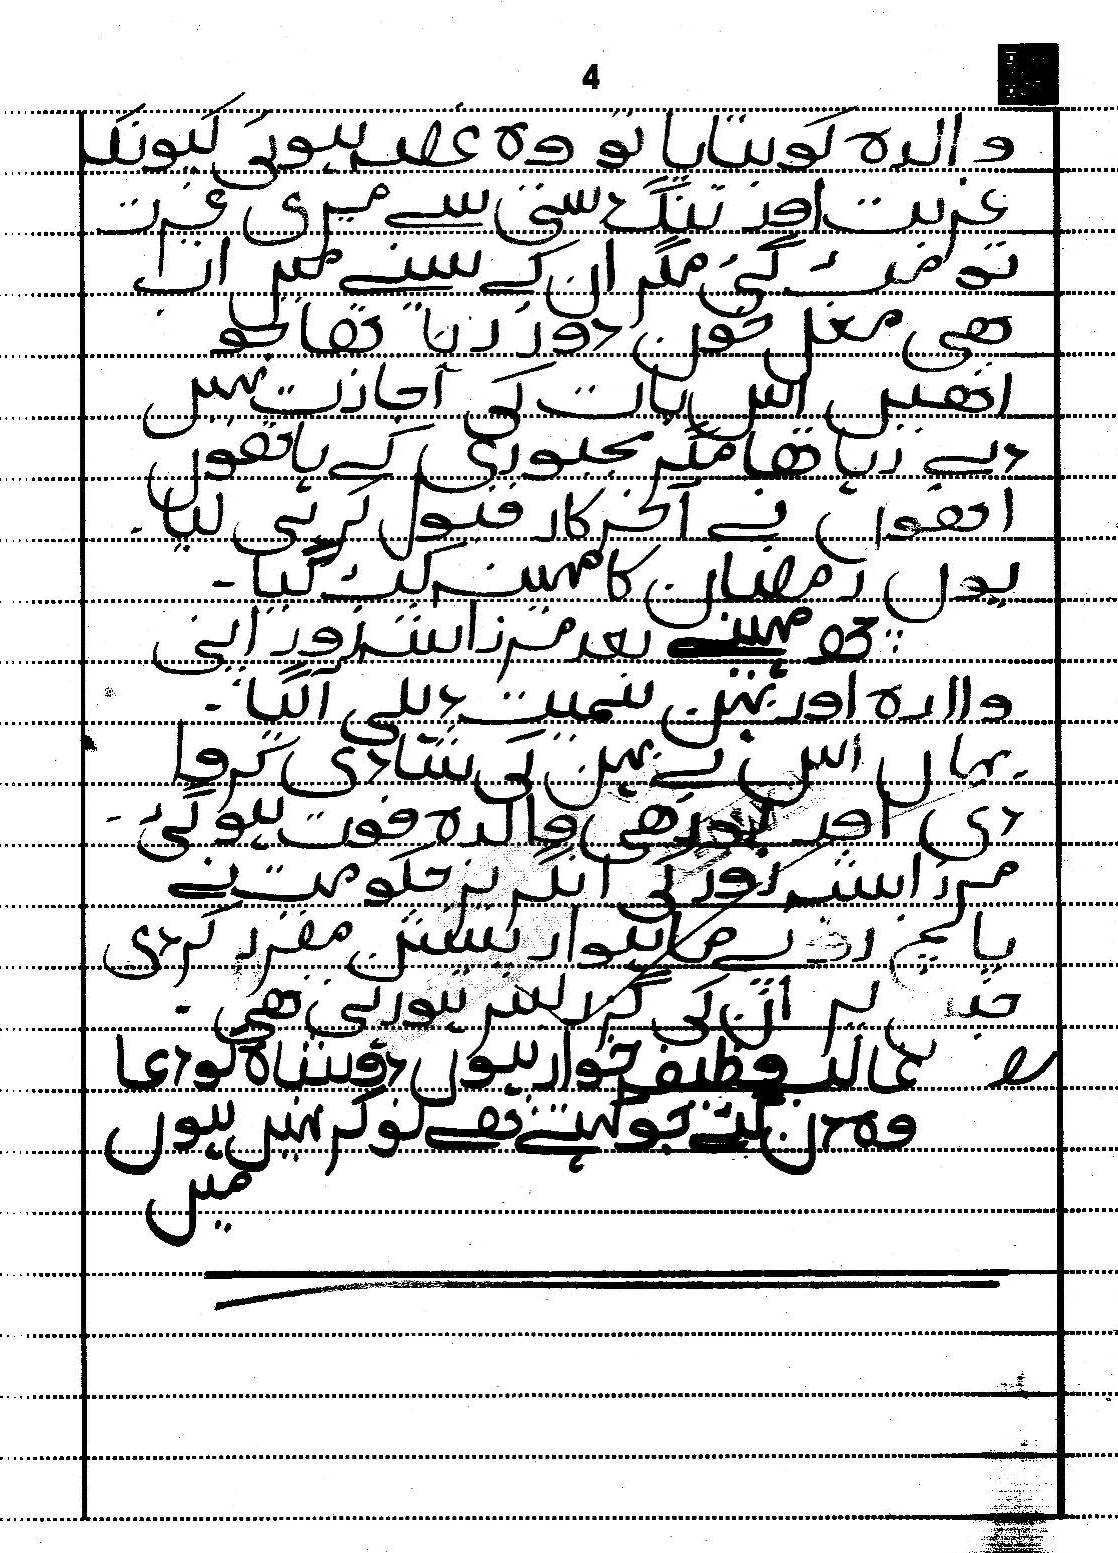 4
والدہ کو بتایا تو وہ غصہ ہوئی کیونکہ
غربت اور تنگ دستی سے میری غیرت
تو مٹ گئی مگر ان کے سینے میں اب
بھی مغل خون دوڑ رہا تھا جو
انھیں اس بات کی اجازت نہیں
دے رہا تھا مگر مجبوری کے ہاتھوں
انھوں نے آخر کار قبول کر ہی لیا۔
یوں رمضان کا مہینہ کٹ گیا۔
کچھ مہینے بعد مرزا شہ زور اپنی
والدہ اور بہن سمیت دہلی آگیا۔
یہاں اس نے بہن کی شادی کروا
دی اور بوڑھی والدہ فوت ہوگئی۔
مرزا شہ زور کی انگریز حکومت نے
پانچ روپے ماہوار پنشن مقرر کر دی
جس پر ان کی گزر بسر ہو رہی تھی۔
غالب وظیفہ خوار ہوں دو شاہ کو دعا
وہ دن گئے جو کہتے تھے نوکر نہیں ہوں
میں